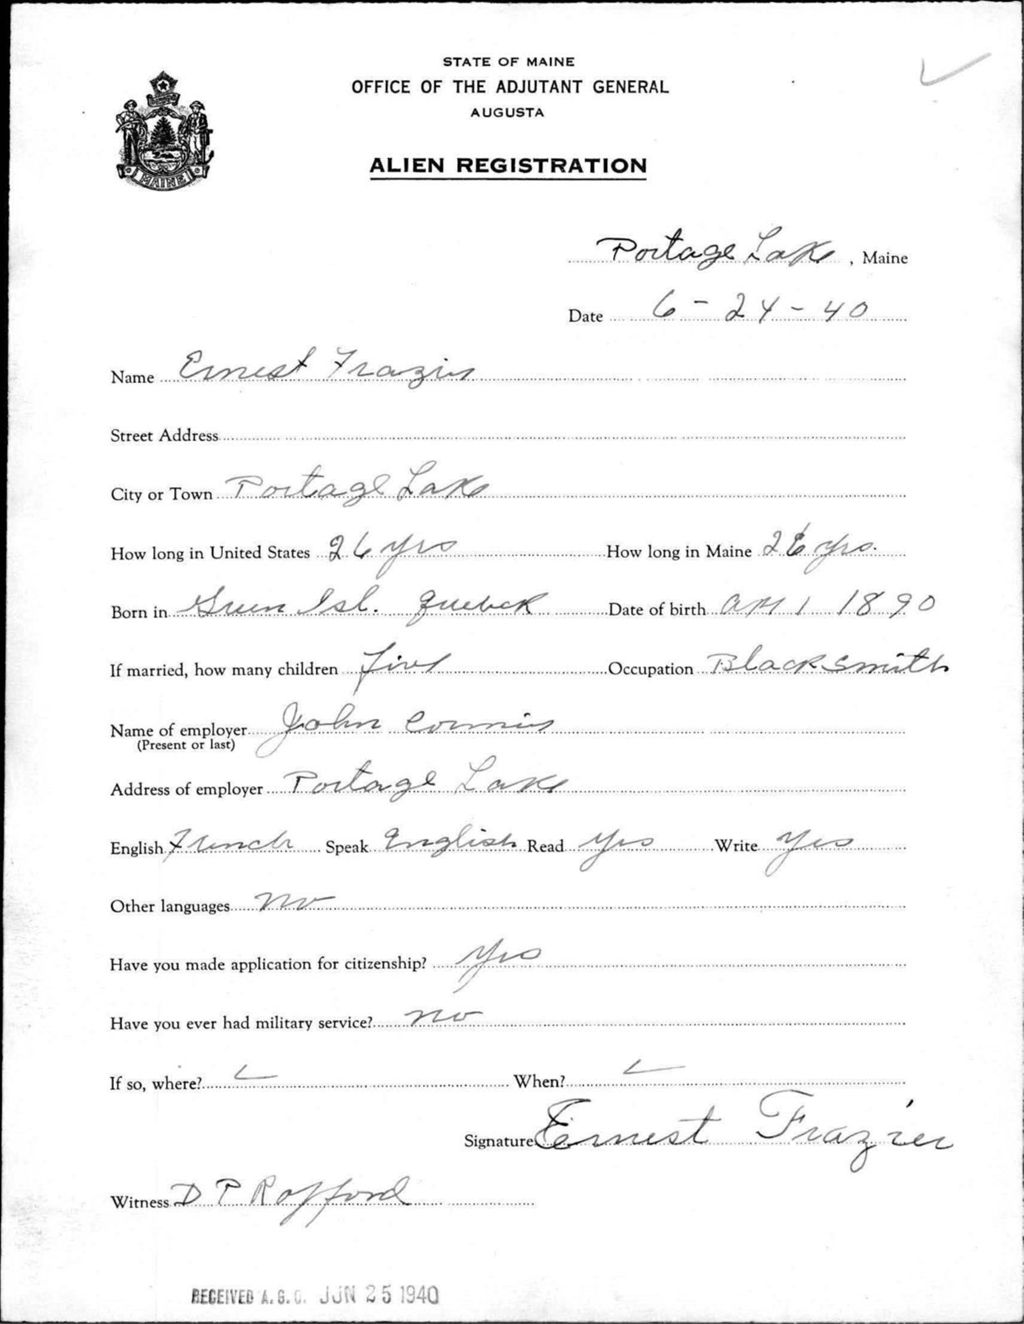 STATE OF MAINE
OFFICE OF THE ADJUTANT GENERAL
AUGUSTA
ALIEN REGISTRATION
MAINE
Portage Lake, Maine
Date 6-24-40
Name Ernest Frazier
Street Address
City or Town Portage Lake
How long in United States 26 yrs How long in Maine 26 yrs.
Born in Green Isl. Quebeck Date of birth 1 1890
If married, how many children five Occupation Blacksmith
Name of employer John
(Present or last)
Address of employer Portage Lake
English French Speak English Read Yes Write Yes
Other languages no
Have you made application for citizenship? Yes
Have you ever had military service? no
If so, where? When?
Signature Ernest Frazier
Witness D P Rafford
RECEIVED A.G.O. JUN 25 1940